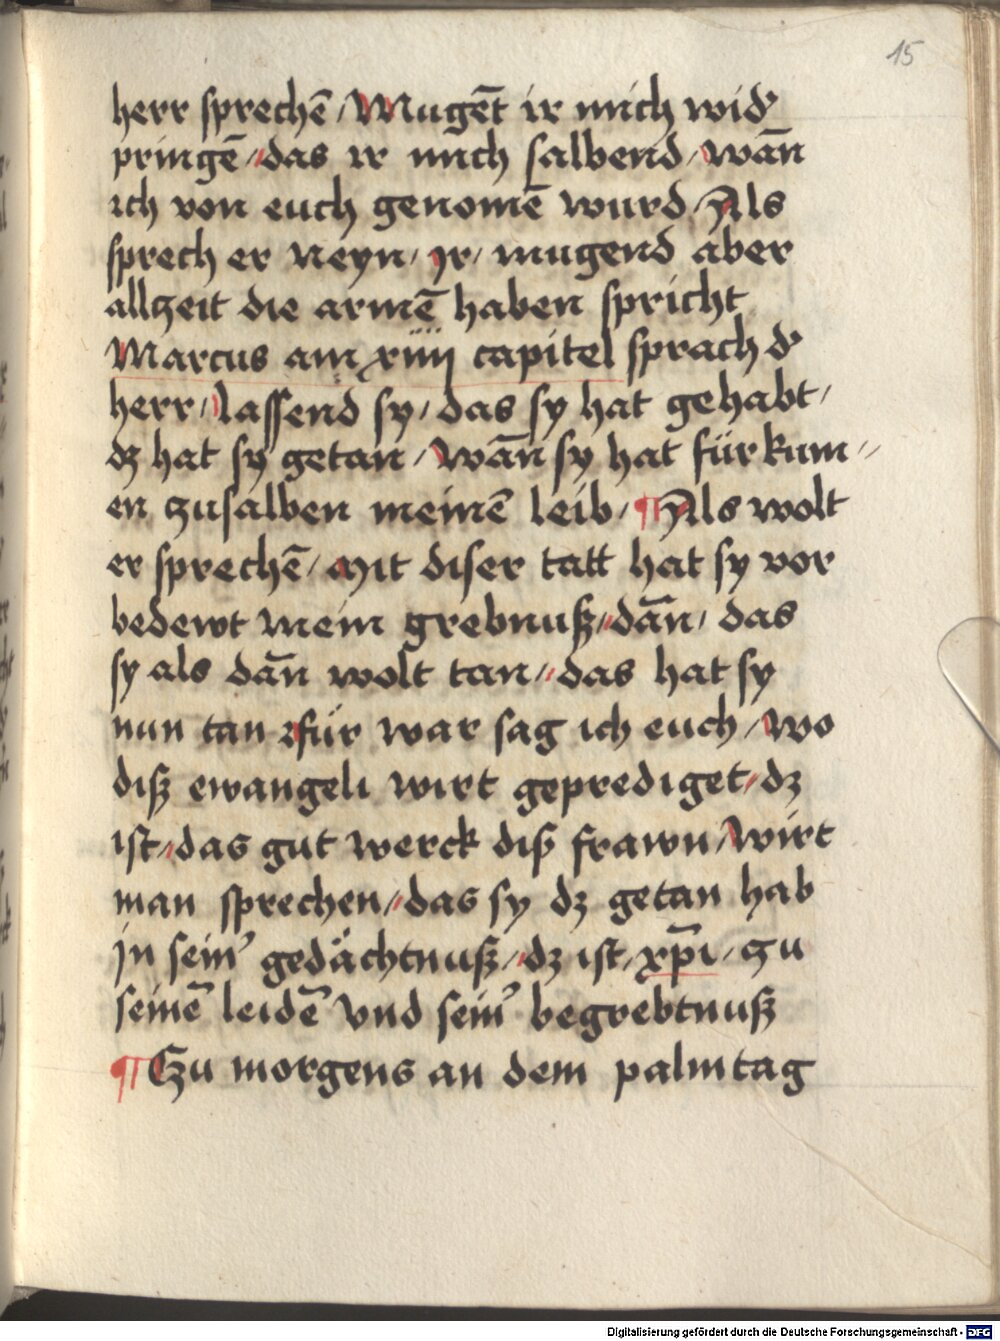 15
herr sprechē / Mugēt ir mich wid'
pringē / das ir mich salbend / wān
ich von euch genomē wurd / Als
sprech er neyn / Ir / mugend aber
allzeit die armē haben spricht
Marcus am xiiij capitel sprach d'
herr / lassend sy / das sy hat gehabt /
dz hat sy getan / wān sy hat für kum //
en zu salben meinē leib / ¶ Als wolt
er sprechē / Mit diser tatt hat sy vor
bedewt mein grebnuß / dān / das
sy als dān wolt tan / das hat sy
nun tan für war sag ich euch / wo
diß ewangeli wirt geprediget / dz
ist / das gut werck diß frawn / wirt
man sprechen / das sy dz getan hab
in sein' gedächtnuß / dz ist / xp̄i / zu
seinē leidē vnd sein' begrebtnuß
¶ Zu morgens an dem palmtag
Digitalisierung gefördert durch die Deutsche Forschungsgemeinschaft - DFG